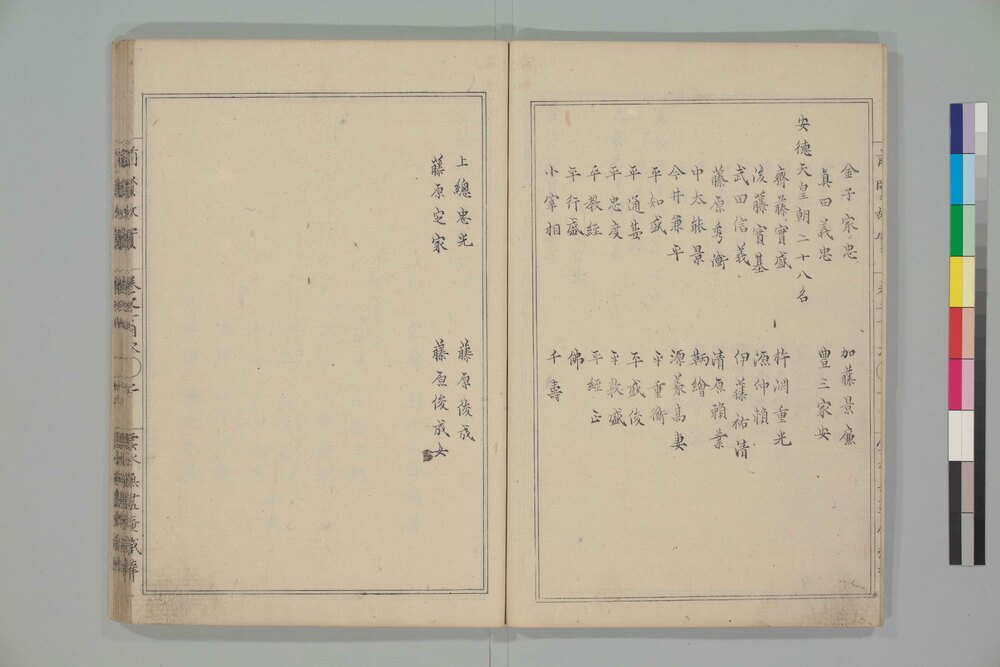 金子家忠 加藤景廉
真田義忠 豊三家安
安徳天皇朝二十八名
齊藤實盛 杵淵重光
後藤實基 源仲頼
武田信義 伊藤祐清
藤原秀衡 清原頼業
中太能景 鞆繪
今井兼平 源義高妻
平知盛 平重衡
平通盛 平盛俊
平忠度 平敦盛
平教経 平経正
平行盛 佛
小宰相 千壽
上總忠光 藤原俊成
藤原定家 藤原俊成女
前賢故實